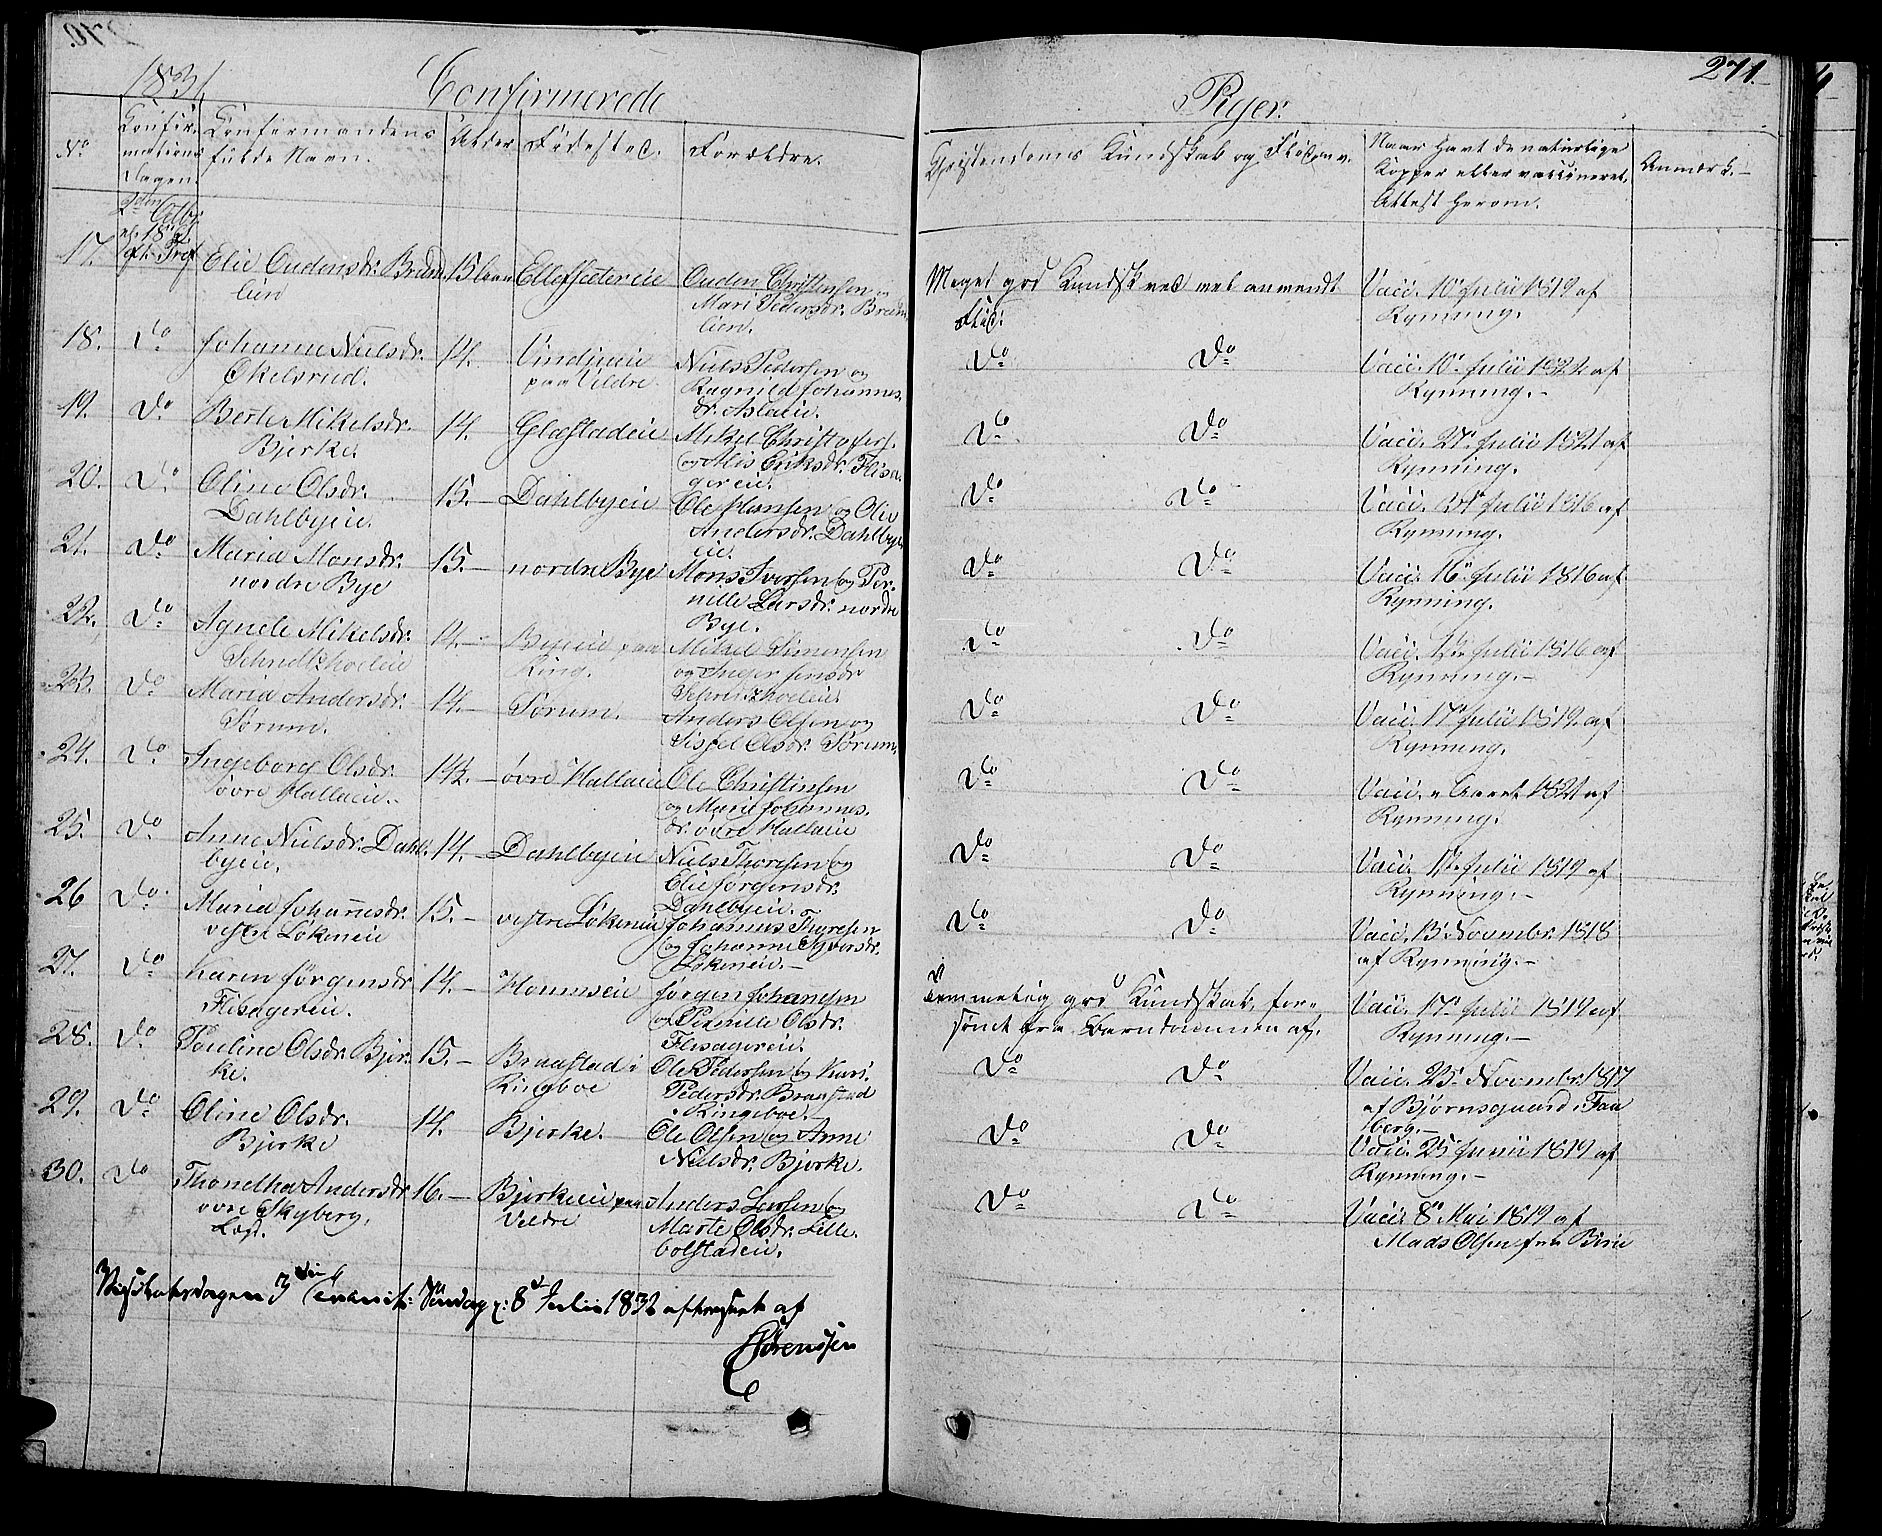 1831
Confirmerede
Piger.
271.
No
Confir-
mations
Dagen.
Confirmandens
fulde Navn.
Alder
Födested.
Forældre.
Christendoms Kundskab og Flid m.v.
Naar havt de naturlige
Kopper eller vaccineret,
Attest herom.
Anmærk.
17.
Elie Oudensdr. Bräm
lien
15 Aar
Ellefsætereie
Ouden Christensen
Mari Pedersdr. Bräm
lien.
Meget god Kundskab vel anvendt
Flid.
Vacc. 10 Julii 1819 af
Rynning.
18.
Do
Johanne Nielsdr.
Ekelsrud.
14.
Lindjeeie
paa Veldre
Niels Pedersen og
Ragnild Johannes
dr. Aslaeie.
Do
Do
Vacc. 10 Julii 1821 af
Rynning.
19.
Do
Berte Mikelsdr.
Bjerke.
14.
Glæstadeie
Mikel Christofers.
og Alis Eriksdr. Flisa
gereie.
Do
Do
Vacc. 27 Julii 1821 af
Rynning.
20.
Do
Oline Olsdr.
Dahlbyeie.
15.
Dahlbyeie
Ole Hansen og Oliv
Andersdr. Dahlbye
eie.
Do
Do
Vacc. 31 Julii 1816 af
Rynning.
21.
Do
Maria Monsdr.
nordre Bye
15.
nordre Bye
Mons Iversen og Per-
nille Larsdr. nordre
Bye.
Do
Do
Vacc. 16 Julii 1816 af
Rynning.
22.
Do
Agnete Mikelsdr.
14.
Byeeie paa
Ring.
Mikel Simensen
og Inger Jensdr
Do
Do
Vacc. Julii 1816 af
Rynning.
23.
Do
Maria Andersdr.
Sörum.
14.
Sörum.
Anders Olsen og
Sissel Olsdr. Sörum.
Do
Do
Vacc. 17 Julii 1819 af
Rynning.
24.
Do
Ingeborg Olsdr.
övre Hallaeie.
14½.
övre Hallaeie
Ole Christensen
og Marie Johannes.
dr. övre Hallaeie
Do
Do
Vacc. Aaret 1821 af
Rynning.
25.
Do
Anne Nielsdr. Dahl
byeie.
14.
Dahlbyeie
Niels Thoresen og
Elie Jörgensdr.
Dahlbyeie.
Do
Do
Vacc. Julii 1819 af
Rynning.
26
Do
Maria Johannesdr.
vestre Lökeneie
15.
vestre Lökeneie
Johannes Thoresen
og Johanne Syversdr.
Lökeneie.
Do
Do
Vacc. 13 Novembr. 1818
af Rynning.
27.
Do
Karen Jörgensdr
Flisagereie.
14.
Houmseie
Jörgen Johansen
og Pernille Olsdr.
Flisagereie.
Temmelig god Kundskab, for-
sömt fra Barndommen af.
Vacc. 17 Julii 1819 af
Rynning.
28.
Do
Pauline Olsdr. Bjer
ke.
15.
Braastad i
Ringboe
Ole Pedersen og Kari
Pedersdr. Braastad
Ringeboe.
Do
Do
Vacc. 25 Novembr. 1817
af Björnsgaard i Faa
berg.
29.
Do
Oline Olsdr.
Bjerke
14.
Bjerke.
Ole Olsen og Anne
Nielsdr. Bjerke.
Do
Do
Vacc. 25 Junii 1819 af
Rynning.
30.
Do
Thonetha Andersdr
övre Skyberg.
Lægd.
16.
Bjerkeeie paa
Veldre
Anders Larsen og
Marte Olsdr. Lille
bolstadeie.
Do
Do
Vacc. 8 Mai 1819 af
Mads Olsen fra Birie
Visitatsdagen 3die Trinit: Söndag 8de Julii 1832 af
Sörenssen